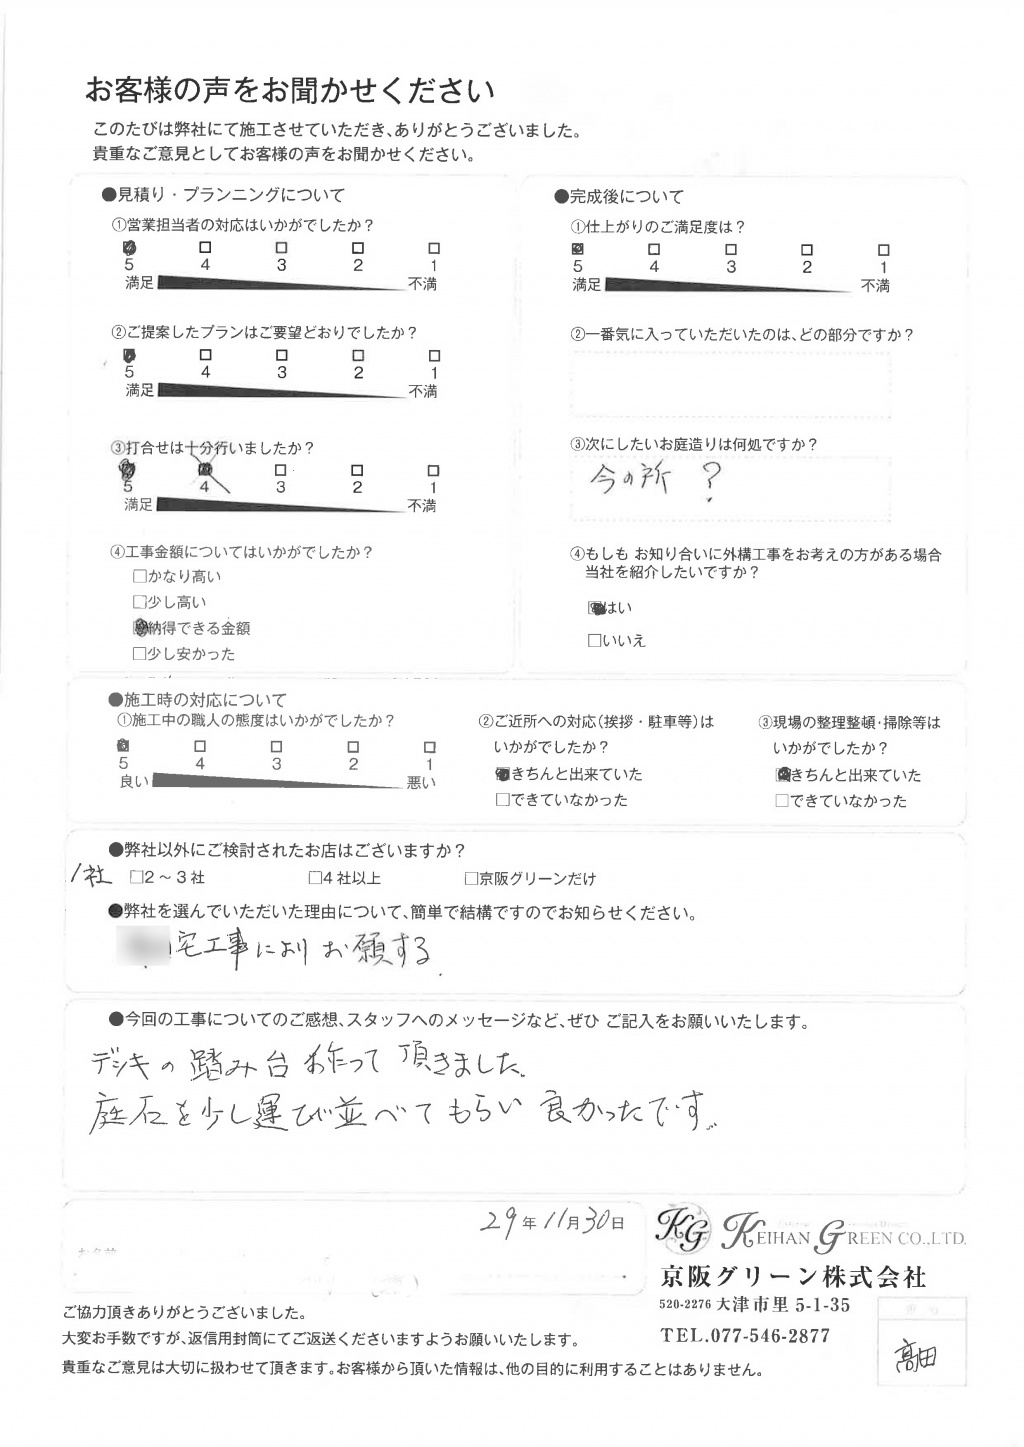 お客様の声をお聞かせください
このたびは弊社にて施工させていただき、ありがとうございました。
貴重なご意見としてお客様の声をお聞かせください。
●見積り・プランニングについて
①営業担当者の対応はいかがでしたか?
5 4 3 2 1
満足 不満
②ご提案したプランはご要望どおりでしたか?
5 4 3 2 1
満足 不満
③打合せは十分行いましたか?
5 4 3 2 1
満足 不満
④工事金額についてはいかがでしたか?
□かなり高い
□少し高い
■納得できる金額
□少し安かった
●完成後について
①仕上がりのご満足度は?
5 4 3 2 1
満足 不満
②一番気に入っていただいたのは、どの部分ですか?
③次にしたいお庭造りは何処ですか?
今の所 ?
④もしも お知り合いに外構工事をお考えの方がある場合
当社を紹介したいですか?
■はい
□いいえ
●施工時の対応について
①施工中の職人の態度はいかがでしたか?
5 4 3 2 1
良い 悪い
②ご近所への対応(挨拶・駐車等)は
いかがでしたか?
■きちんと出来ていた
□できていなかった
③現場の整理整頓・掃除等は
いかがでしたか?
■きちんと出来ていた
□できていなかった
●弊社以外にご検討されたお店はございますか?
1社 □2～3社 □4社以上 □京阪グリーンだけ
●弊社を選んでいただいた理由について、簡単で結構ですのでお知らせください。
宅工事によりお願する
●今回の工事についてのご感想、スタッフへのメッセージなど、ぜひ ご記入をお願いいたします。
デッキの踏み台 作って頂きました。
庭石を少し運び並べてもらい 良かったです。
29年11月30日
お名前
KG KEIHAN GREEN CO.,LTD.
京阪グリーン株式会社
520-2276 大津市里 5-1-35
TEL.077-546-2877
高田
ご協力頂きありがとうございました。
大変お手数ですが、返信用封筒にてご返送くださいますようお願いいたします。
貴重なご意見は大切に扱わせて頂きます。お客様から頂いた情報は、他の目的に利用することはありません。